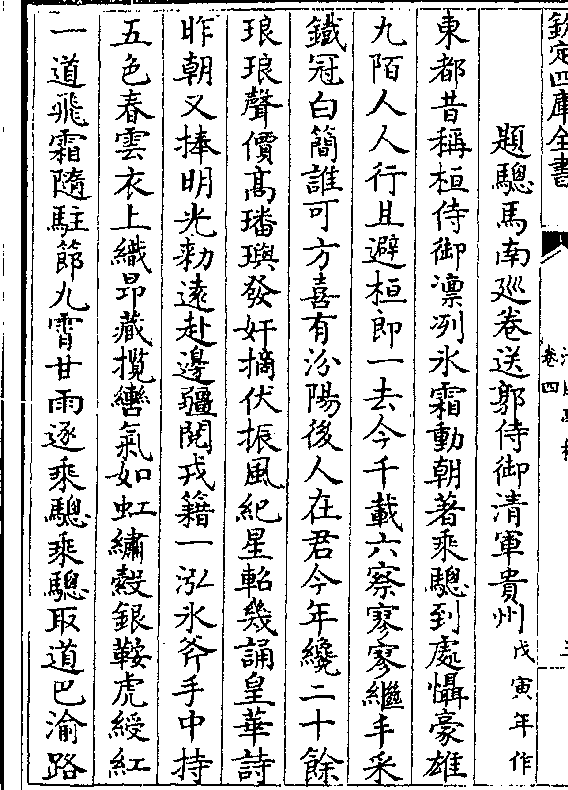 欽定四庫全書
卷四
題驄馬南廵卷送郭侍御清軍貴州戊寅年作
東都昔稱桓侍御凛冽氷霜動朝著乘驄到處懾豪雄
九陌人人行且避桓郎一去今千載六察寥寥繼手采
鐵冠白簡誰可方喜有汾陽後人在君今年纔二十餘
琅琅聲價髙璠璵發奸摘伏振風紀星軺幾誦皇華詩
昨朝又捧明光勑遠赴邊疆閲戎籍一泓氷斧手中持
五色春雲衣上織昂藏攬轡氣如虹繡縠銀鞍虎綬紅
一道飛霜隨駐節九霄甘雨逐乘驄乘驄取道巴渝路